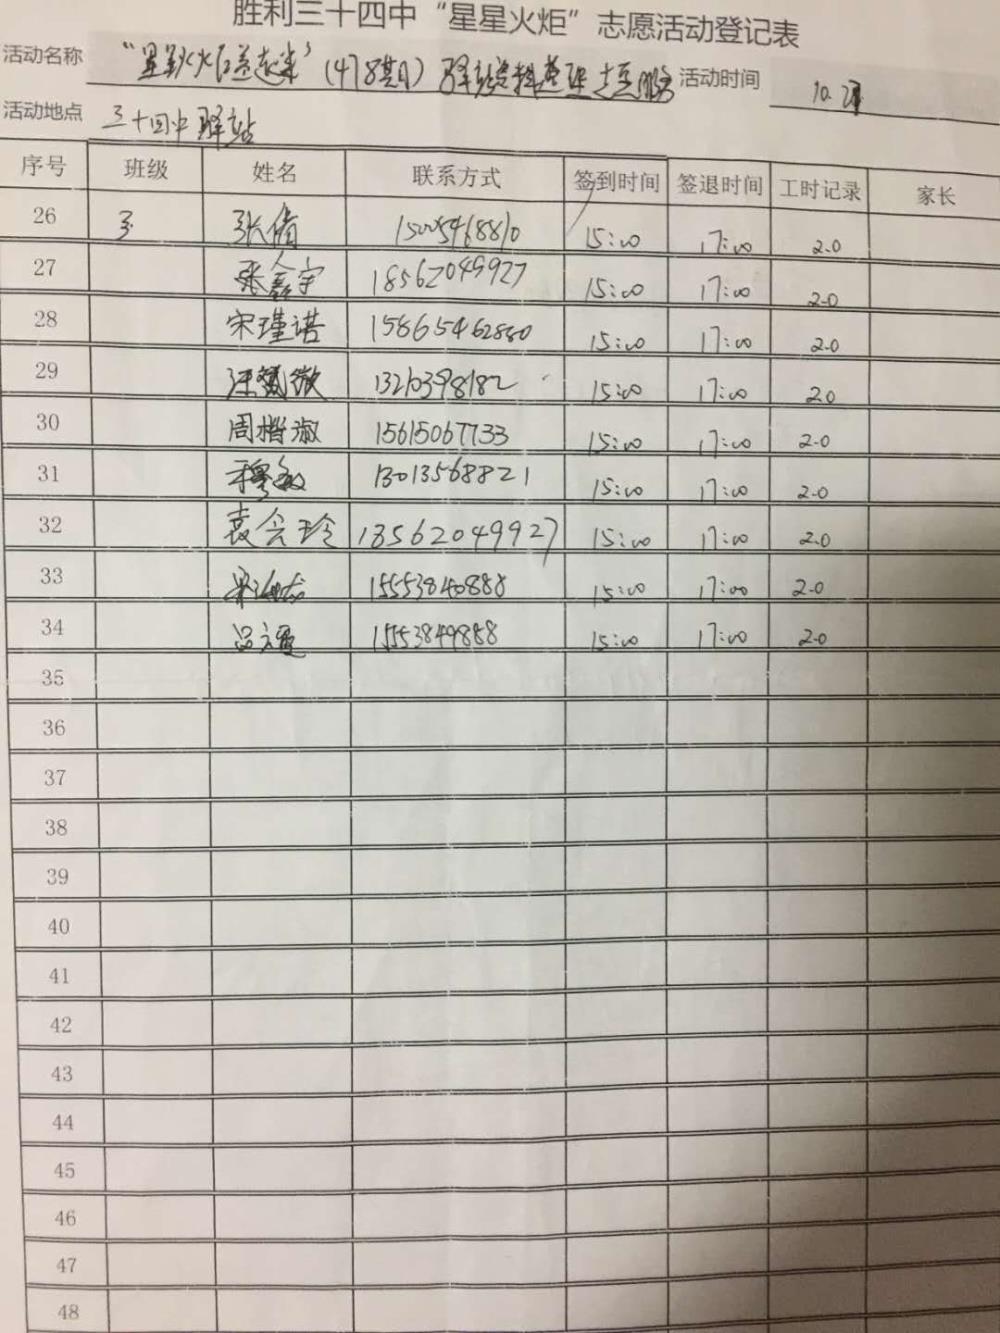 胜利三十四中“星星火炬”志愿活动登记表
活动名称 (478期) 驿站资料整理 活动时间 10.2
活动地点 三十四中驿站
序号 班级 姓名 联系方式 签到时间 签退时间 工时记录 家长
26 张倩 15005468810 15:00 17:00 2.0
27 张鑫宇 18562049927 15:00 17:00 2.0
28 宋瑾诺 15865462880 15:00 17:00 2.0
29 15:00 17:00 2.0
30 周楷淑 15615067733 15:00 17:00 2.0
31 穆敏 13013568821 15:00 17:00 2.0
32 袁会玲 18562049927 15:00 17:00 2.0
33 15553840888 15:00 17:00 2.0
34 15553849888 15:00 17:00 2.0
35
36
37
38
39
40
41
42
43
44
45
46
47
48